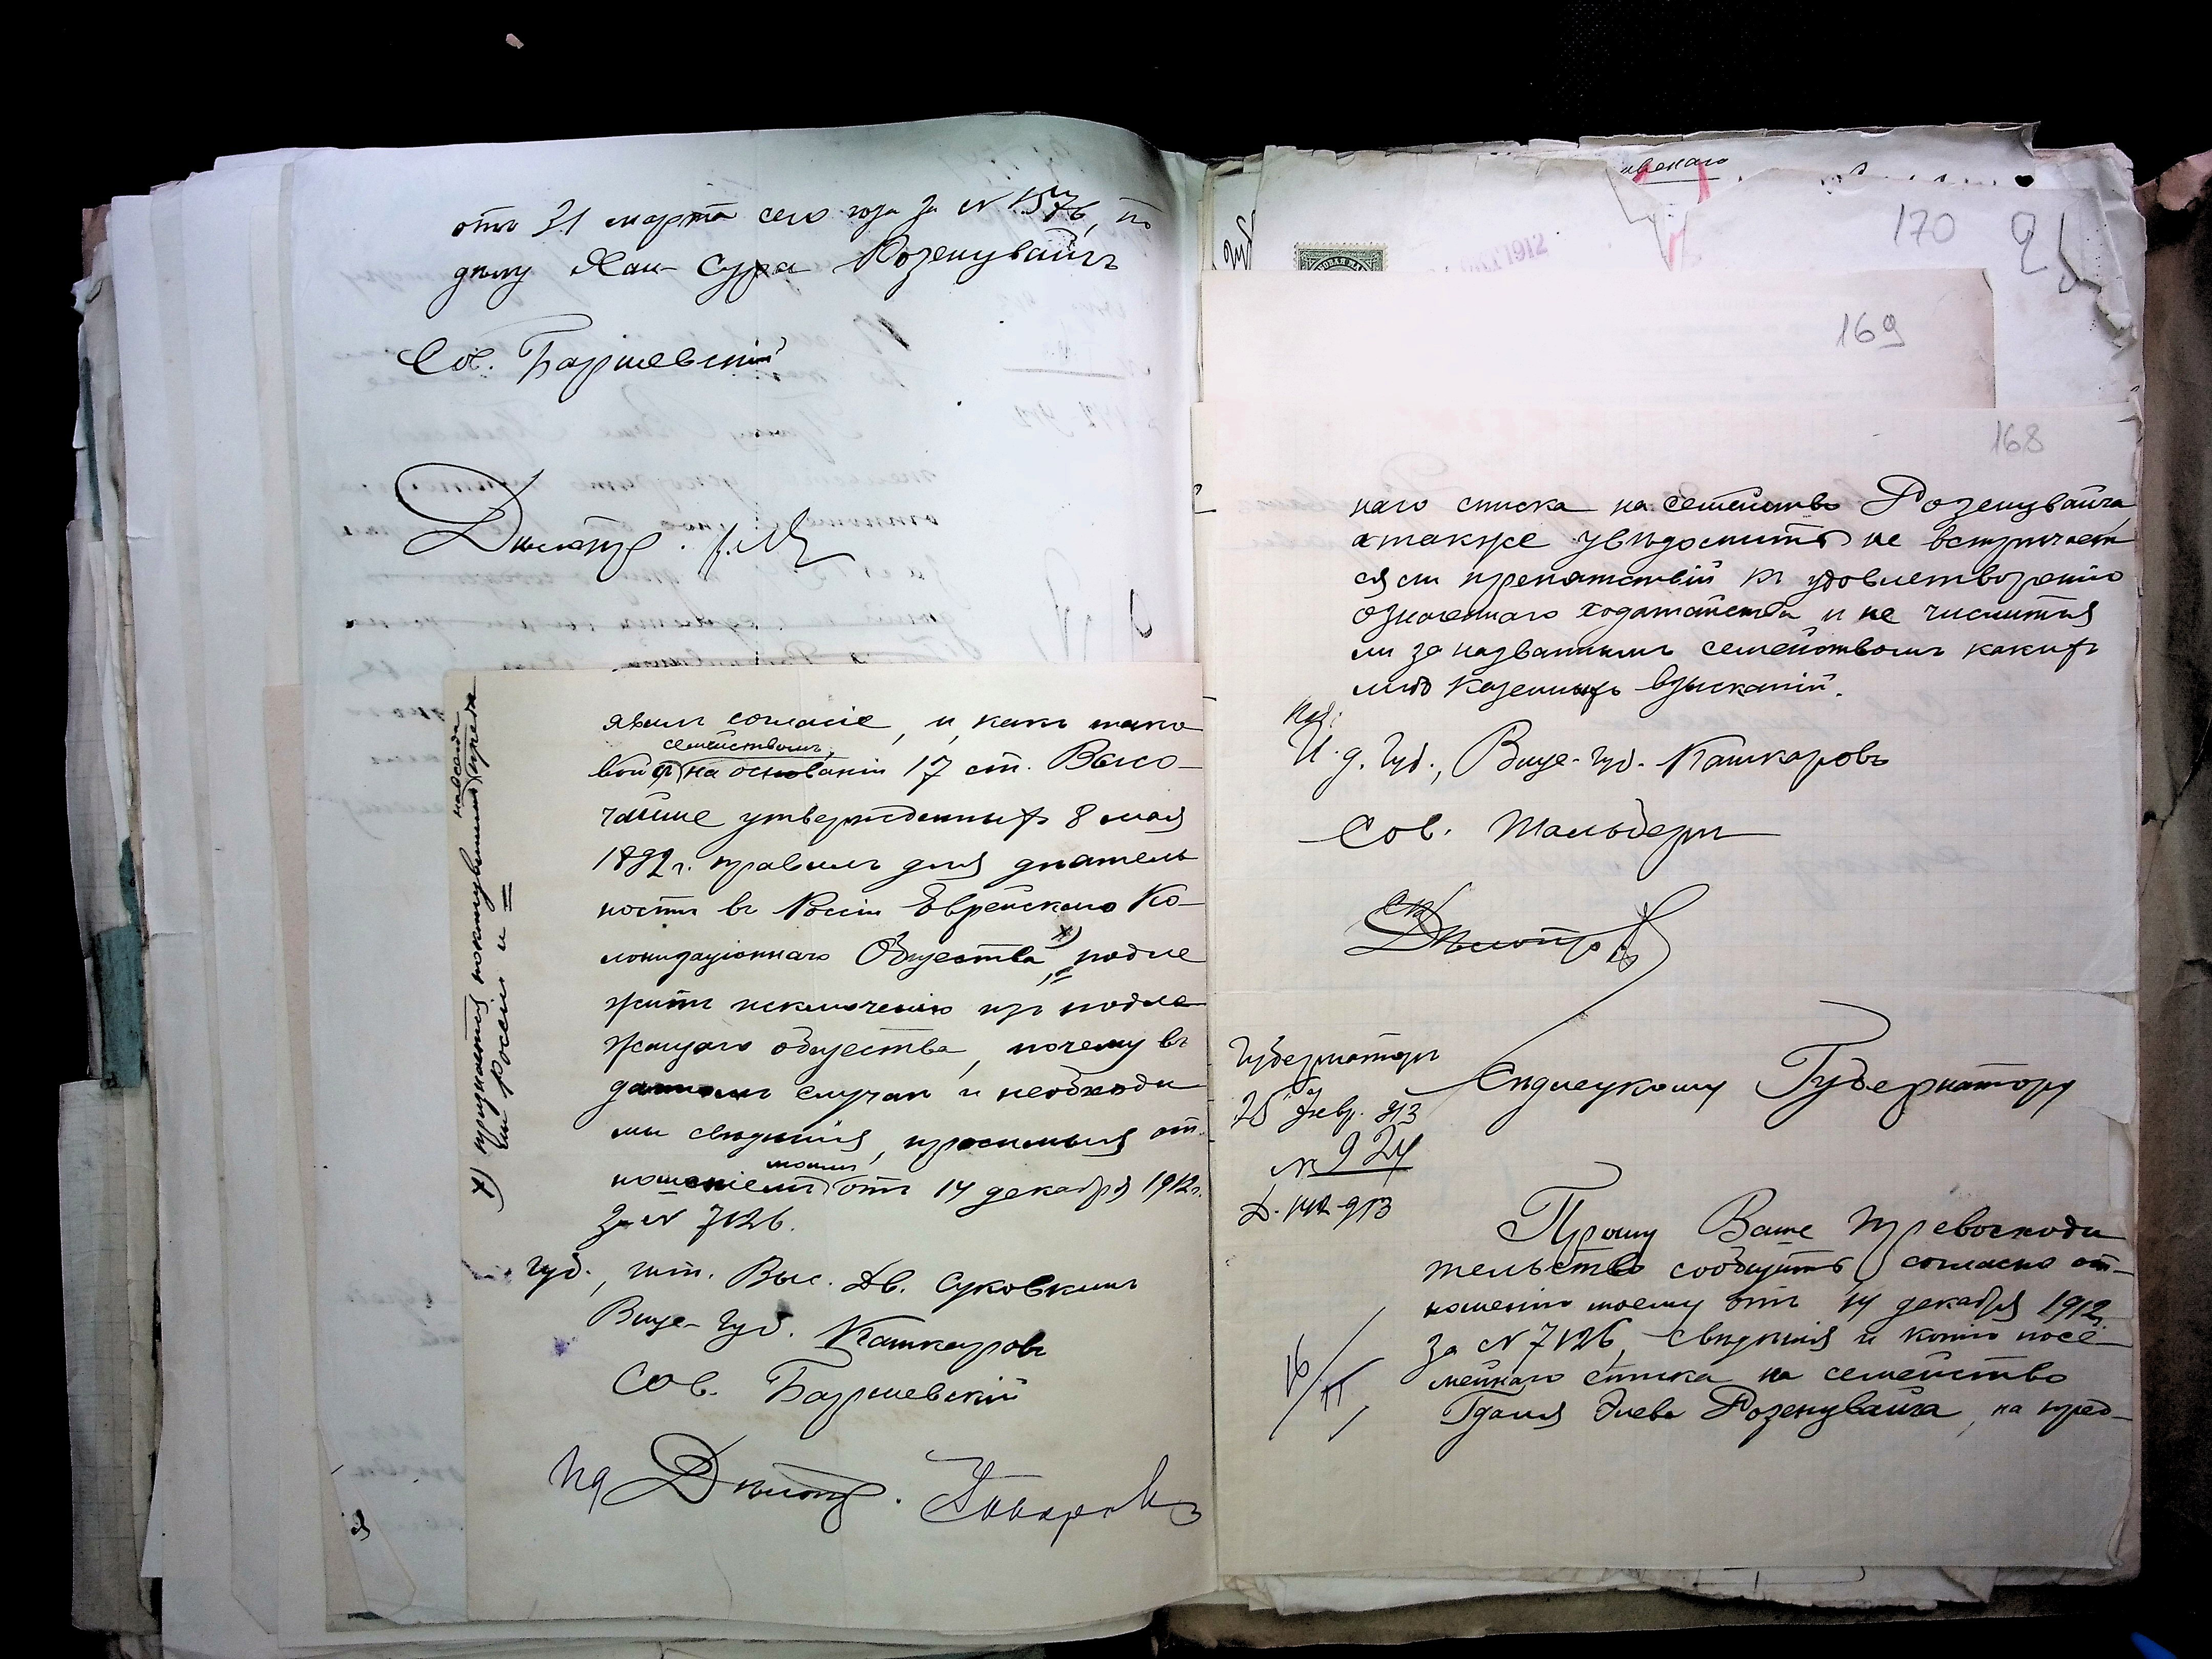 отъ 31 марта сего года за № 1576, по
дѣлу Хаи-Сура Розенцвайгъ
Сов. Барщевскій
Дѣлопр.
явилъ согласіе, и, какъ тако
семействомъ,
вой на основаніи 17 ст. Высо-
чайше утвержденныхъ 8 мая
1892 г. правилъ для дѣятель
ности въ Россіи Еврейскаго Ко-
лонизаціоннаго Общества х) подле
житъ исключенію изъ подле
жащаго общества, почему въ
данномъ случаѣ и необходи
мы свѣдѣнія, просимыя от
моимъ
ношеніемъ отъ 14 декабря 1912 г.
за № 7126.
Губ., шт. Выс. Дв. Суковкинъ
Вице-Губ. Кашкаровъ
Сов. Барщевскій
Дѣлопр.
навсегда
х) признается покинувшимъ предѣ
лы Россіи и
170
169
168
1912
наго списка на семейство Розенцвайга,
а также увѣдомить не встрѣчает
ся ли препятствій къ удовлетворенію
означеннаго ходатайства и не числится
ли за названнымъ семействомъ какихъ
либо казенныхъ взысканій.
И. д. Губ., Вице-Губ. Кашкаровъ
Сов. Тальбергъ
Дѣлопр.
Губернаторъ
25 Февр. 913
№ 924
Д. 142-913
Сѣдлецкому Губернатору
Прошу Ваше Превосходи
тельство сообщить, согласно от-
ношенію моему отъ 14 декабря 1912
за № 7126, свѣдѣнія и копію посе-
мейнаго списка на семейство
Гдаля Розенцвайга, на пред-